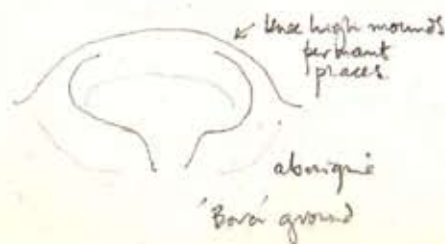 Knee high mounds
permant
places.
aborigine
'Bora' ground